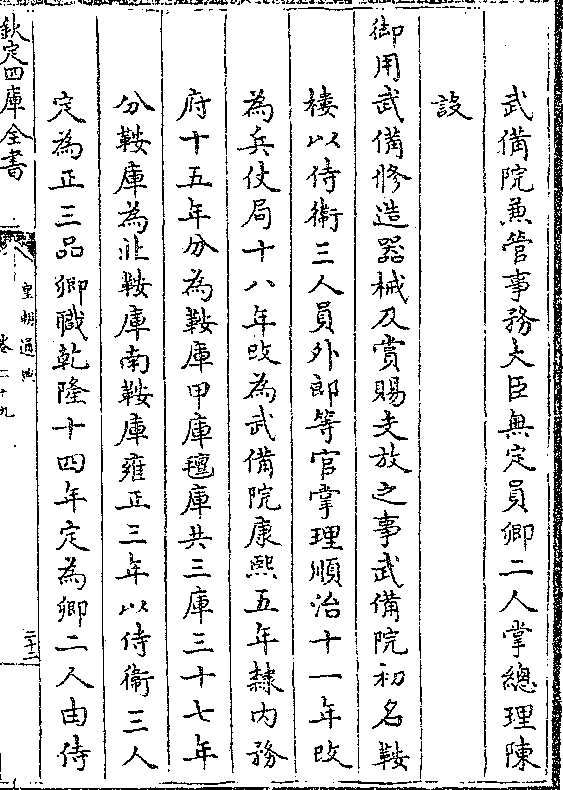 武備院兼管事務大臣無定員卿二人掌總理陳
設
御用武備修造器械及賞賜支放之事武備院初名鞍
樓以侍衛三人員外郎等官掌理順治十一年改
為兵仗局十八年改為武備院康熙五年隸內務
府十五年分為鞍庫甲庫氊庫共三庫三十七年
分鞍庫為北鞍庫南鞍庫雍正三年以侍衛三人
定為正三品卿職乾隆十四年定為卿二人由侍
欽定四庫全書
皇朝通典
卷二十九